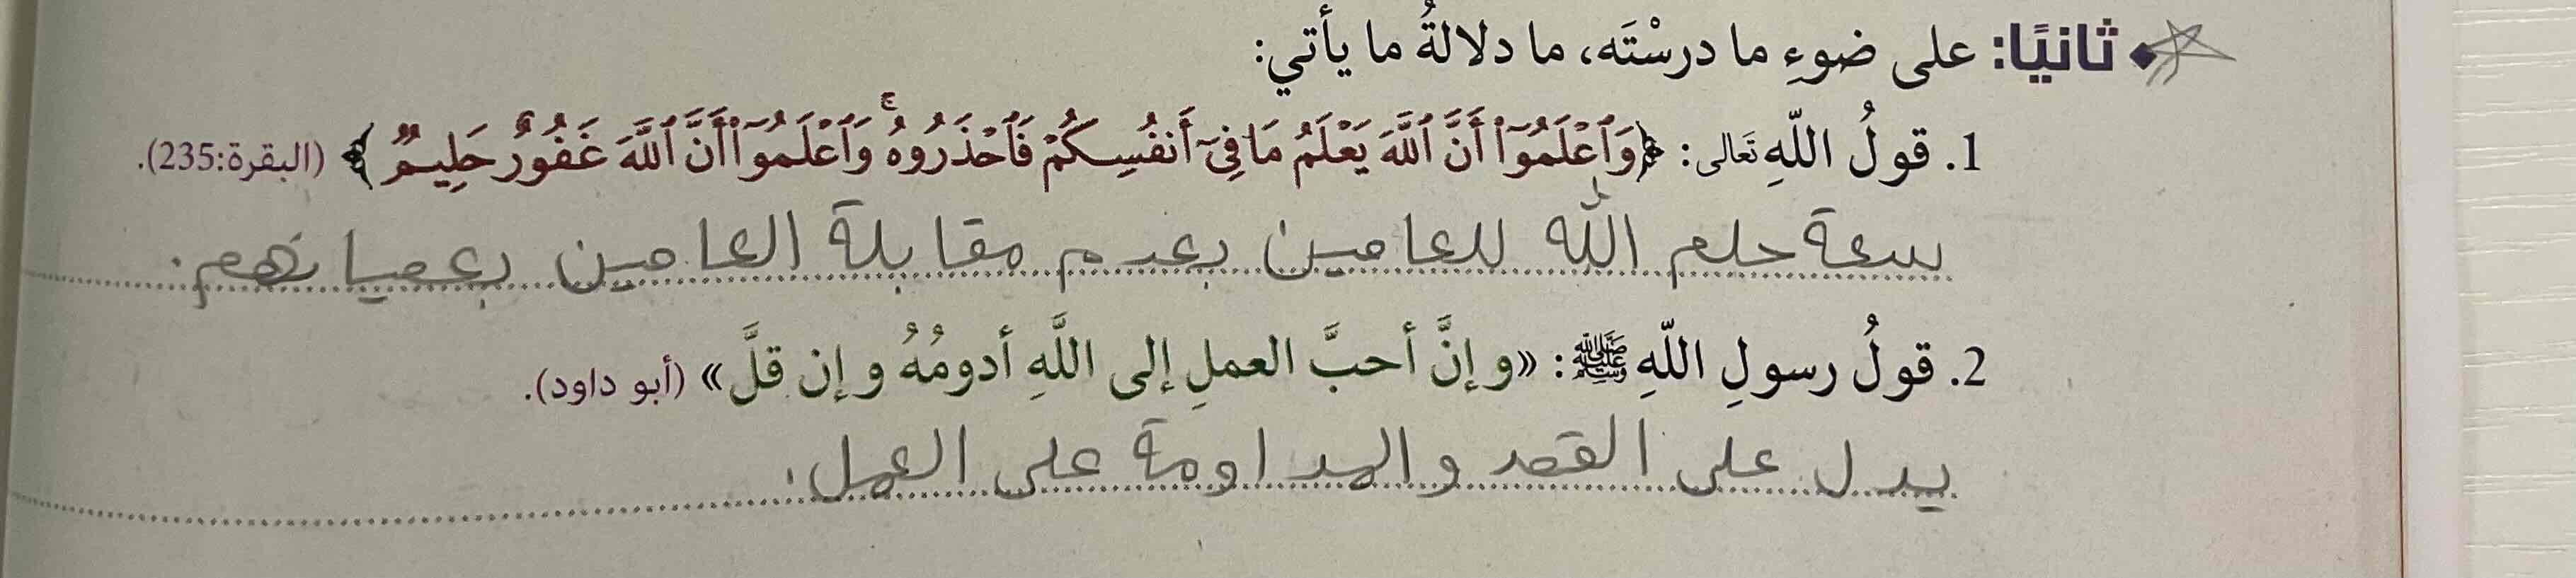 ثانيًا: على ضوءِ ما درسْتَه، ما دلالةُ ما يأتي:
1. قولُ اللّهِ تَعَالى: ﴿وَٱعۡلَمُوٓاْ أَنَّ ٱللَّهَ يَعۡلَمُ مَا فِيٓ أَنفُسِكُمۡ فَٱحۡذَرُوهُۚ وَٱعۡلَمُوٓاْ أَنَّ ٱللَّهَ غَفُورٌ حَلِيمٞ﴾ (البقرة:235).
سعة حلم الله للعاصين بعدم مقابلة العاصين بعصيانهم.
2. قولُ رسولِ اللّهِ ﷺ: «وإنَّ أحبَّ العملِ إلى اللَّهِ أدومُهُ وإن قلَّ» (أبو داود).
يدل على القصد والمداومة على العمل.